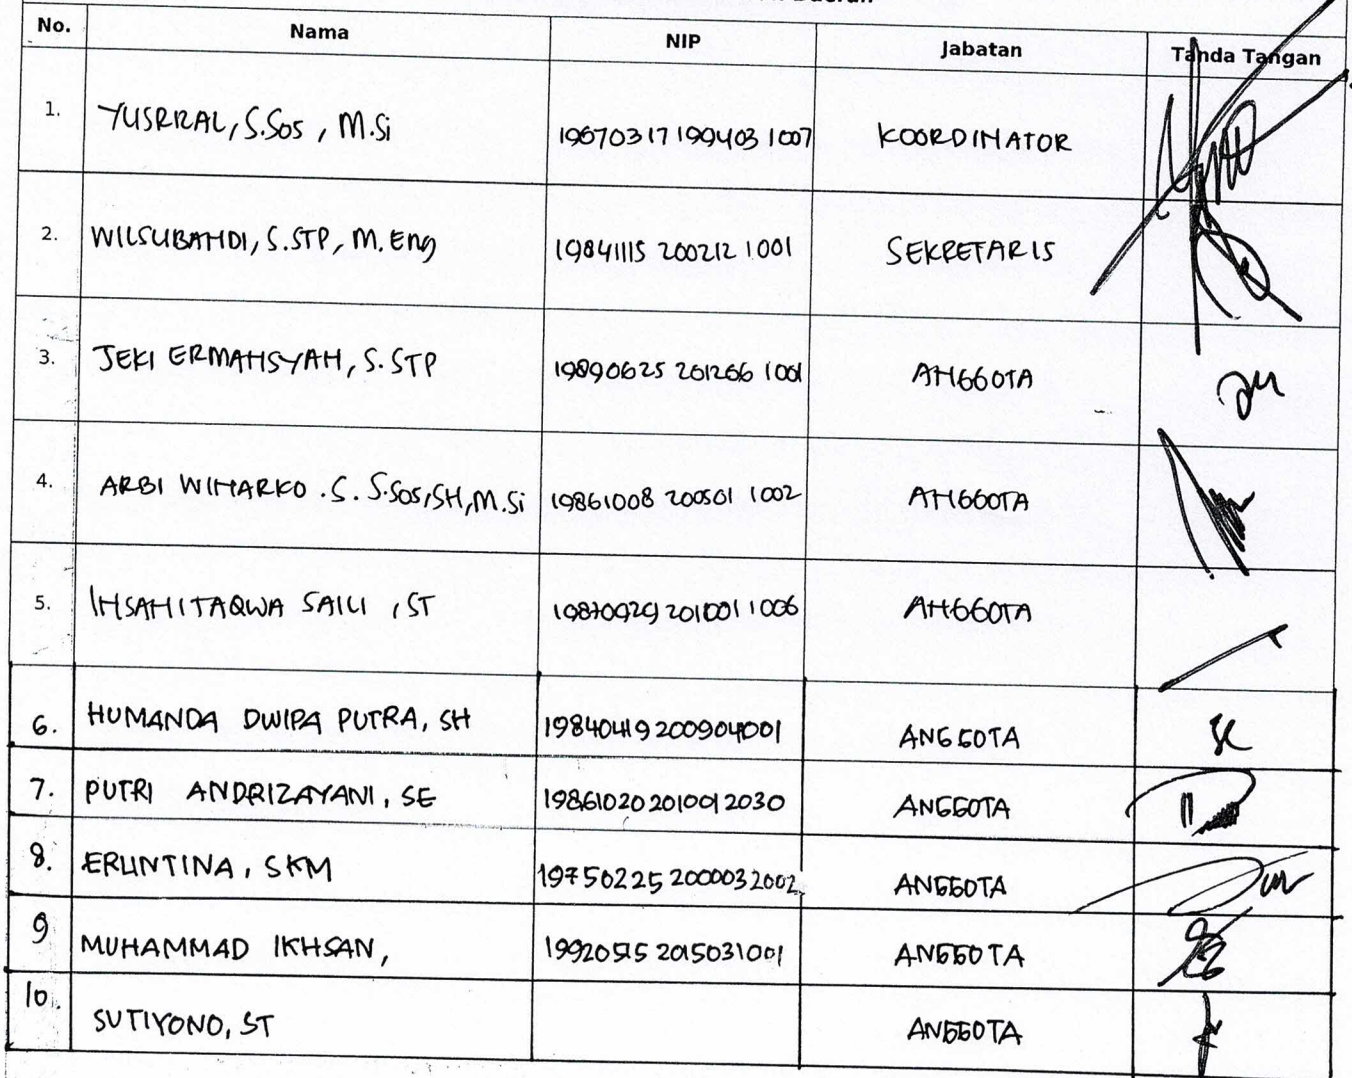 No. Nama NIP Jabatan Tanda Tangan
1. YUSRRAL, S.Sos, M.Si 19670317 199403 1007 KOORDINATOR
2. WILSUBANDI, S.STP, M.Eng 19841115 200212 1001 SEKRETARIS
3. JEKI ERMANSYAH, S.STP 19890625 201206 1001 ANGGOTA
4. ARBI WINARKO .S. S.Sos,SH,M.Si 19861008 200501 1002 ANGGOTA
5. IHSANITAQWA SAILI , ST 19870929 201001 1006 ANGGOTA
6. HUMANDA DWIPA PUTRA, SH 19840419 200904001 ANGGOTA
7. PUTRI ANDRIZAYANI, SE 19861020 2010012030 ANGGOTA
8. ERLINTINA, SKM 19750225 2000032002 ANGGOTA
9 MUHAMMAD IKHSAN, 19920515 2015031001 ANGGOTA
10. SUTIYONO, ST ANGGOTA